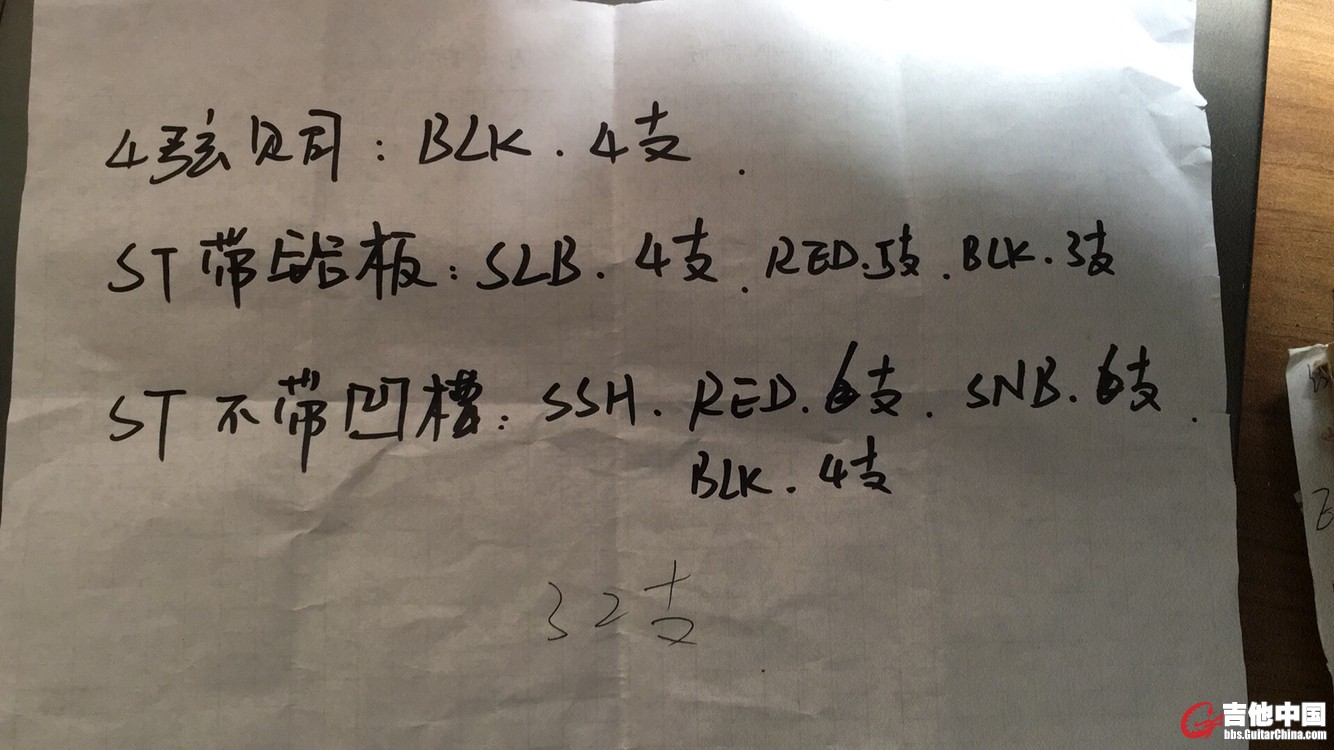 4弦贝司：BLK．4支．
ST带后盖板：SLB．4支．RED．5支．BLK．3支
ST不带凹槽：SSH．RED．6支．SNB．6支．
BLK．4支
32支
吉他中国
bbs.GuitarChina.com